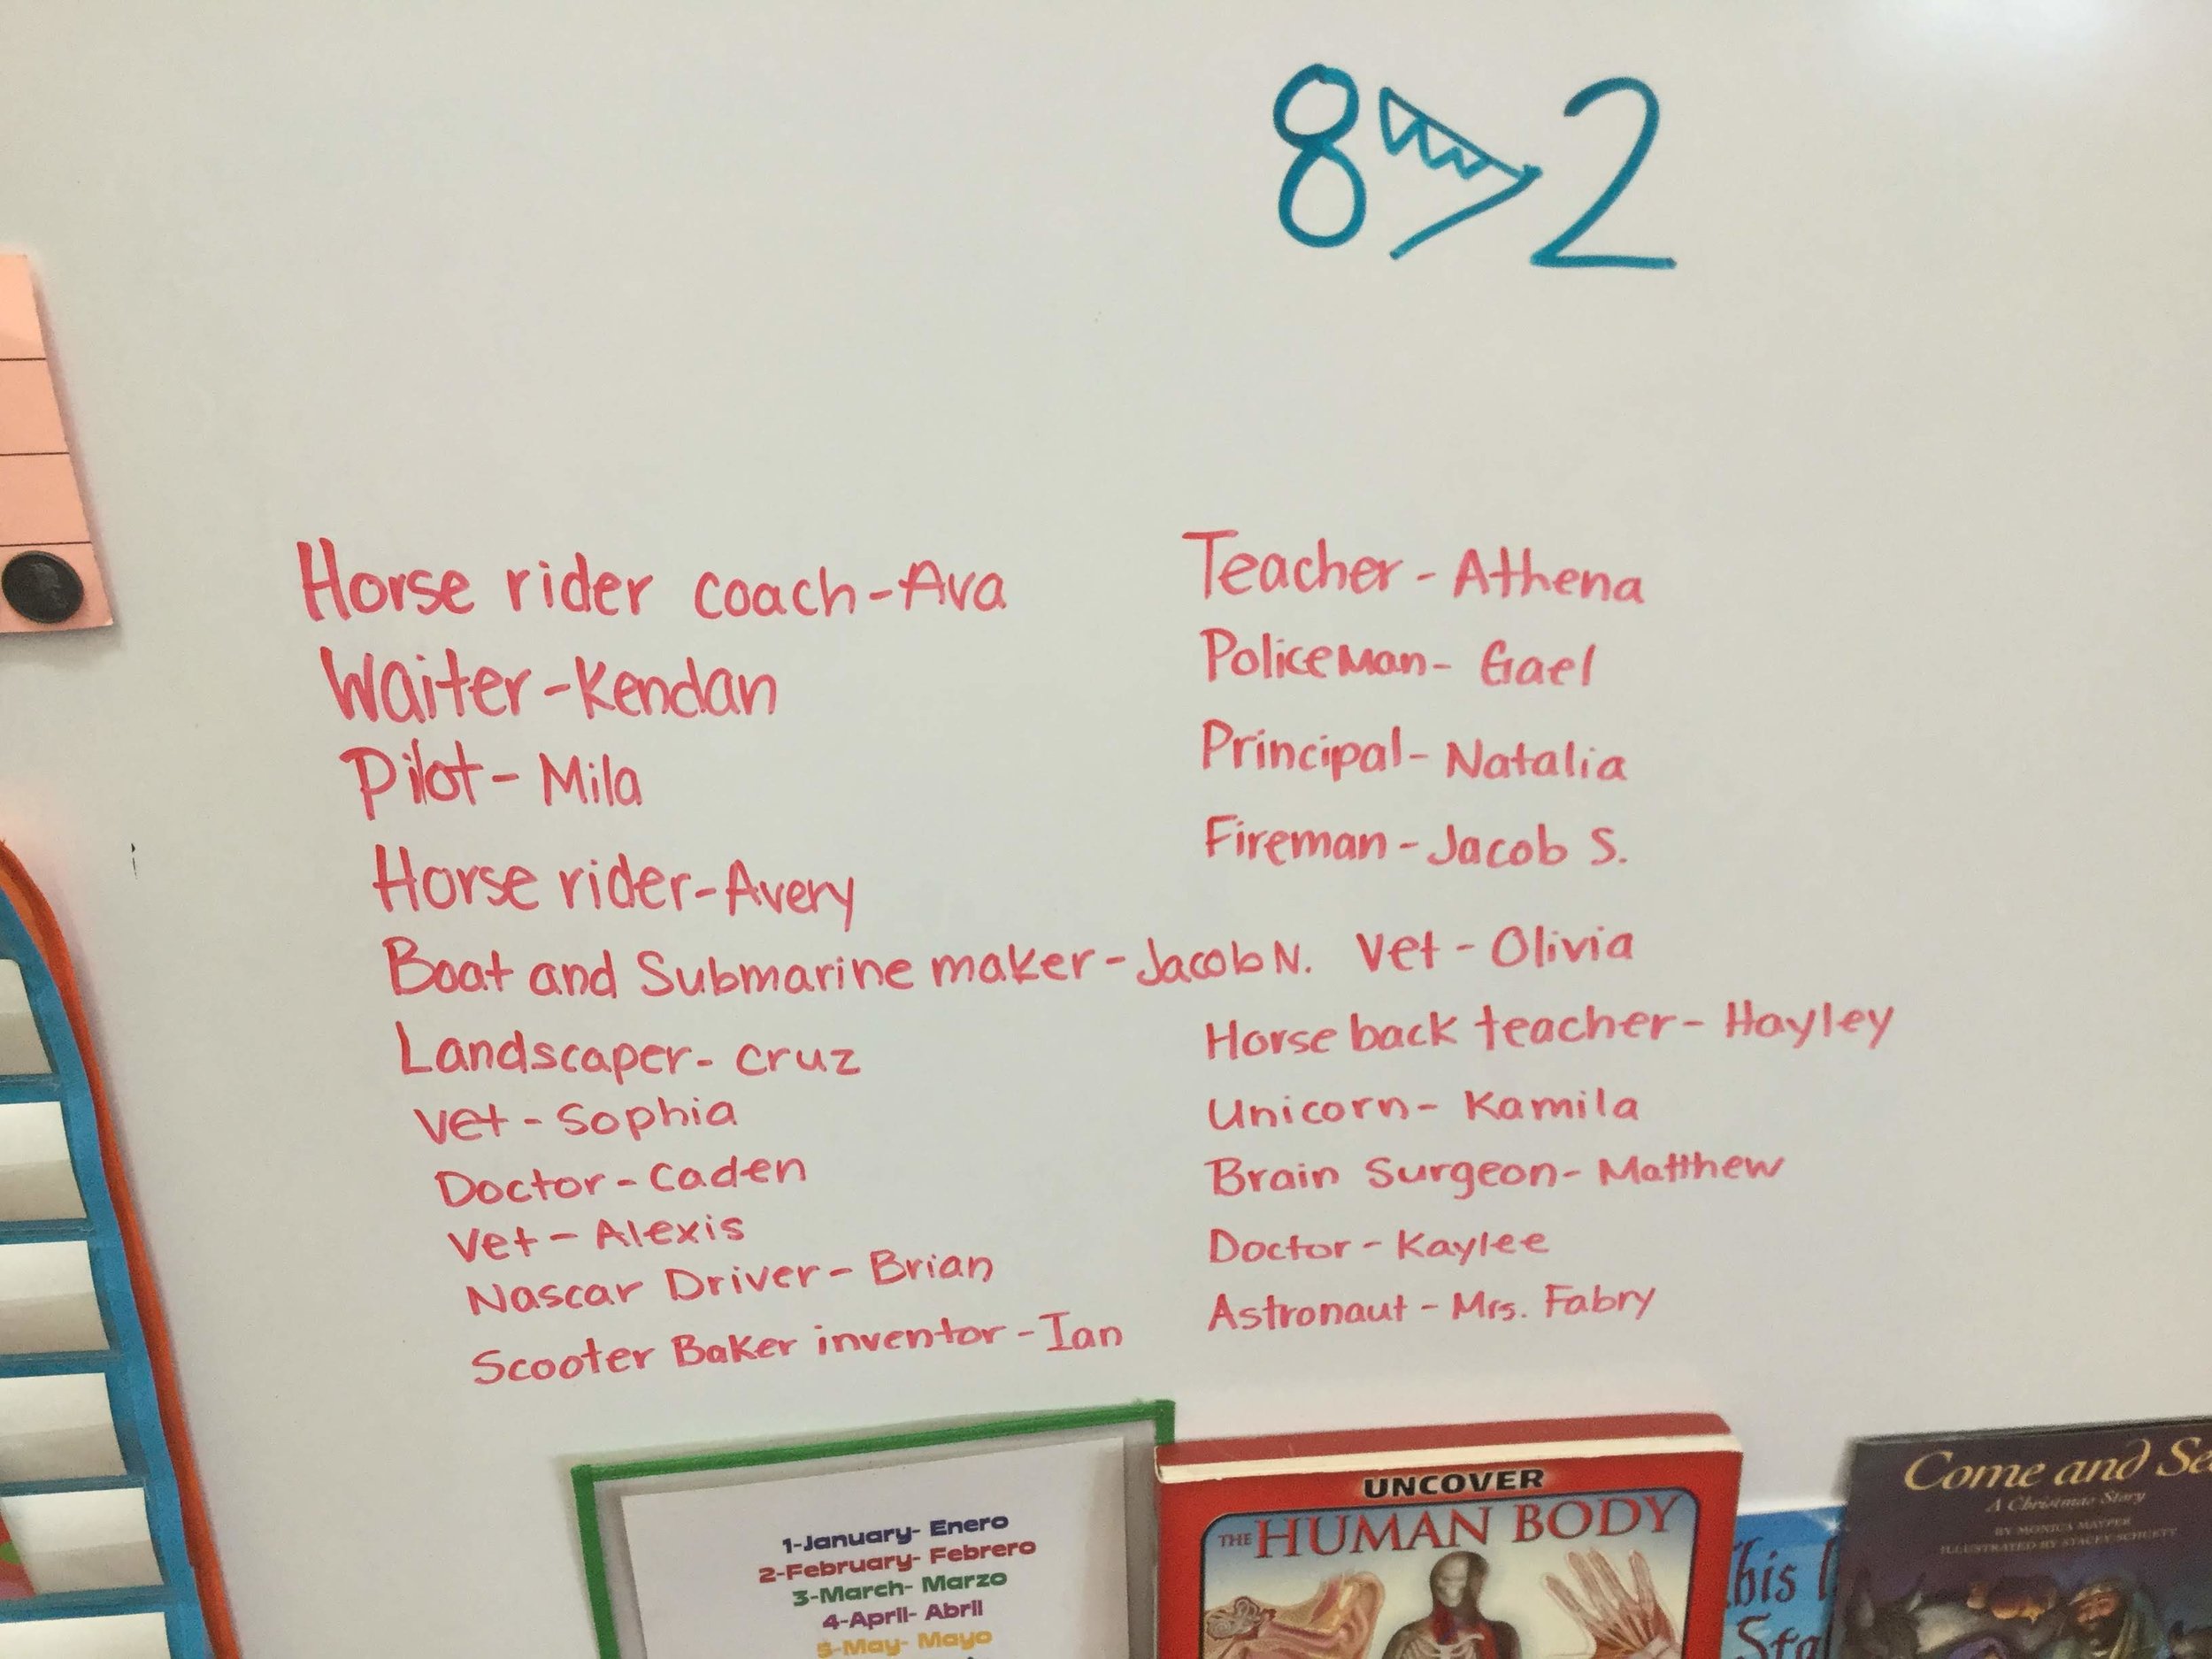 8 > 2
Horse rider coach-Ava
Waiter-Kendan
Pilot-Mila
Horse rider-Avery
Boat and Submarine maker-Jacob N.
Landscaper-Cruz
Vet-Sophia
Doctor-Caden
Vet-Alexis
Nascar Driver-Brian
Scooter Baker inventor-Ian
Teacher-Athena
Policeman-Gael
Principal-Natalia
Fireman-Jacob S.
Vet-Olivia
Horse back teacher-Hayley
Unicorn-Kamila
Brain Surgeon-Matthew
Doctor-Kaylee
Astronaut-Mrs. Fabry
1-January- Enero
2-February- Febrero
3-March- Marzo
4-April- Abril
5-May- Mayo
UNCOVER
THE HUMAN BODY
Come and
A Christmas Story
BY MONICA MAYPER
ILLUSTRATED BY STACEY SCHUETT